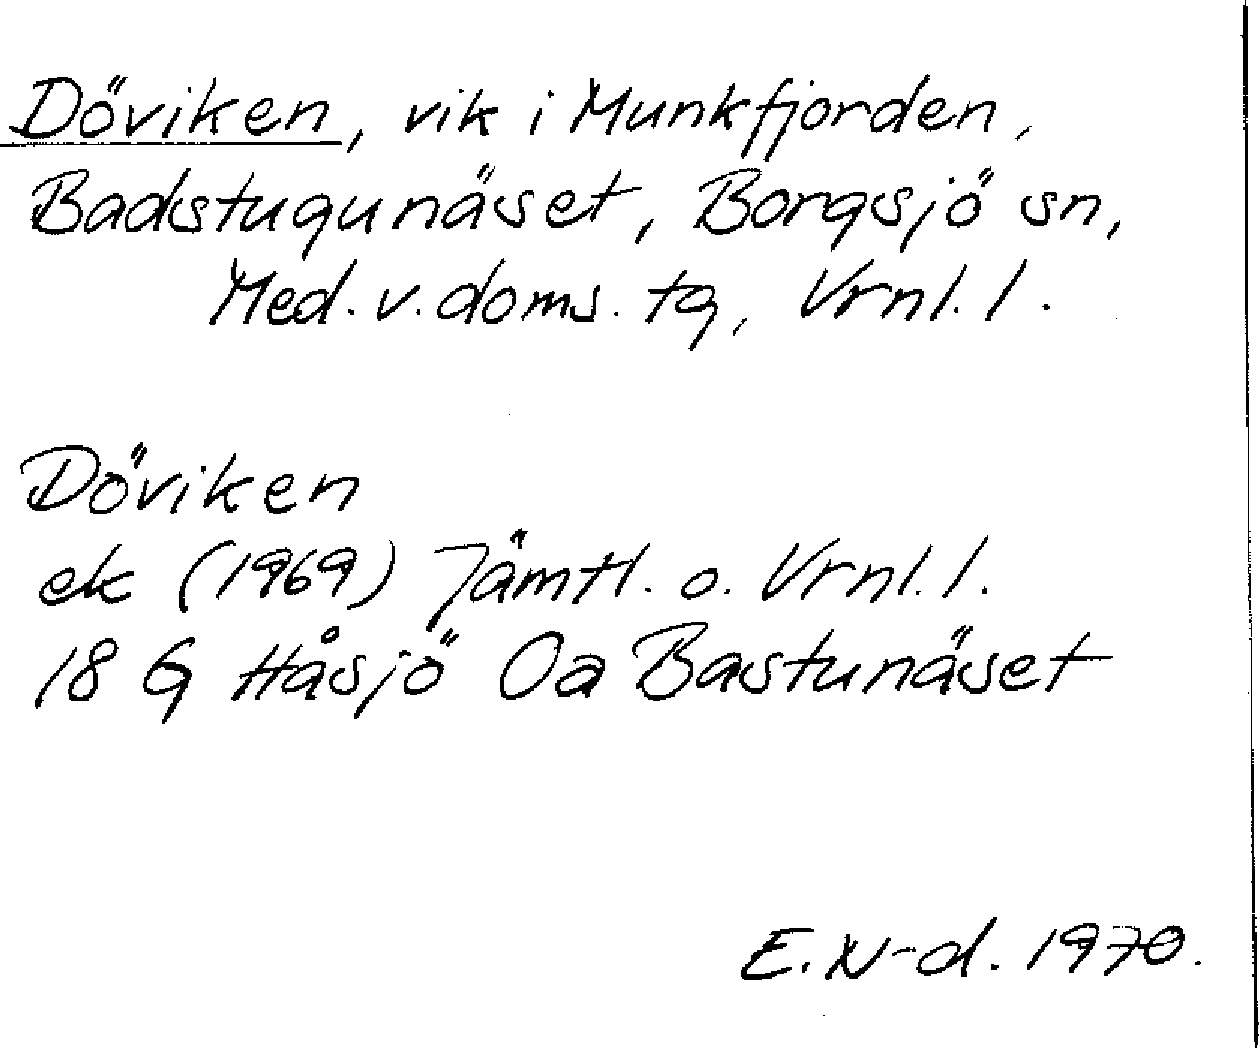 Döviken, vik i Munkfjorden,
Badstugunäset, Borgsjö sn,
Med. v. doms. tg, Vrnl. l.
Döviken
ek (1969) Jämtl. o. Vrnl. l.
18 G Håsjö Oa Bastunäset
E. N-d. 1970.